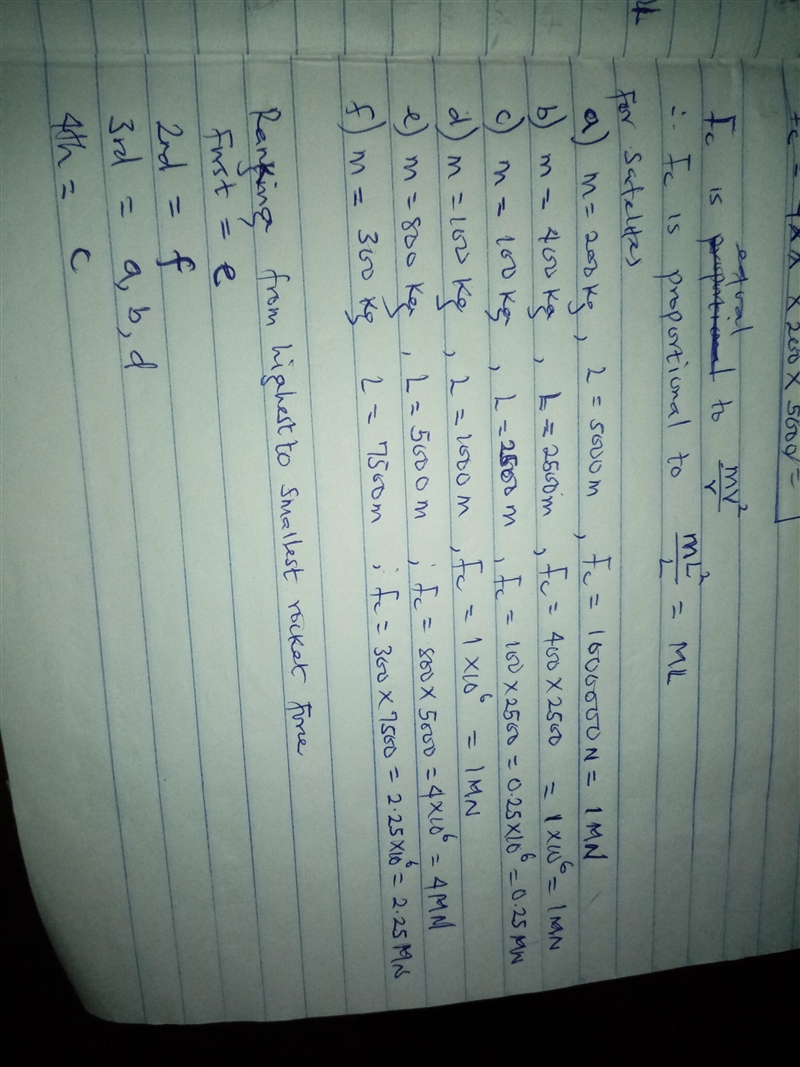 Fc = 4 x x x 200 x 5000 =
Fc is equal to mv²/r
∴ Fc is proportional to mL²/L = ML
for satelites
a) m = 200kg, L = 5000m, Fc = 1000000N = 1MN
b) m = 400kg, L = 2500m, Fc = 400 x 2500 = 1x10⁶ = 1MN
c) m = 100kg, L = 2500m, Fc = 100 x 2500 = 0.25x10⁶ = 0.25MN
d) m = 100kg, L = 1000m, Fc = 1x10⁶ = 1MN
e) m = 800kg, L = 5000m, Fc = 800x5000 = 4x10⁶ = 4MN
f) m = 300kg L = 7500m, Fc = 300x7500 = 2.25x10⁶ = 2.25MN
Ranking from highest to smallest rocket force
first = e
2nd = f
3rd = a, b, d
4th = c